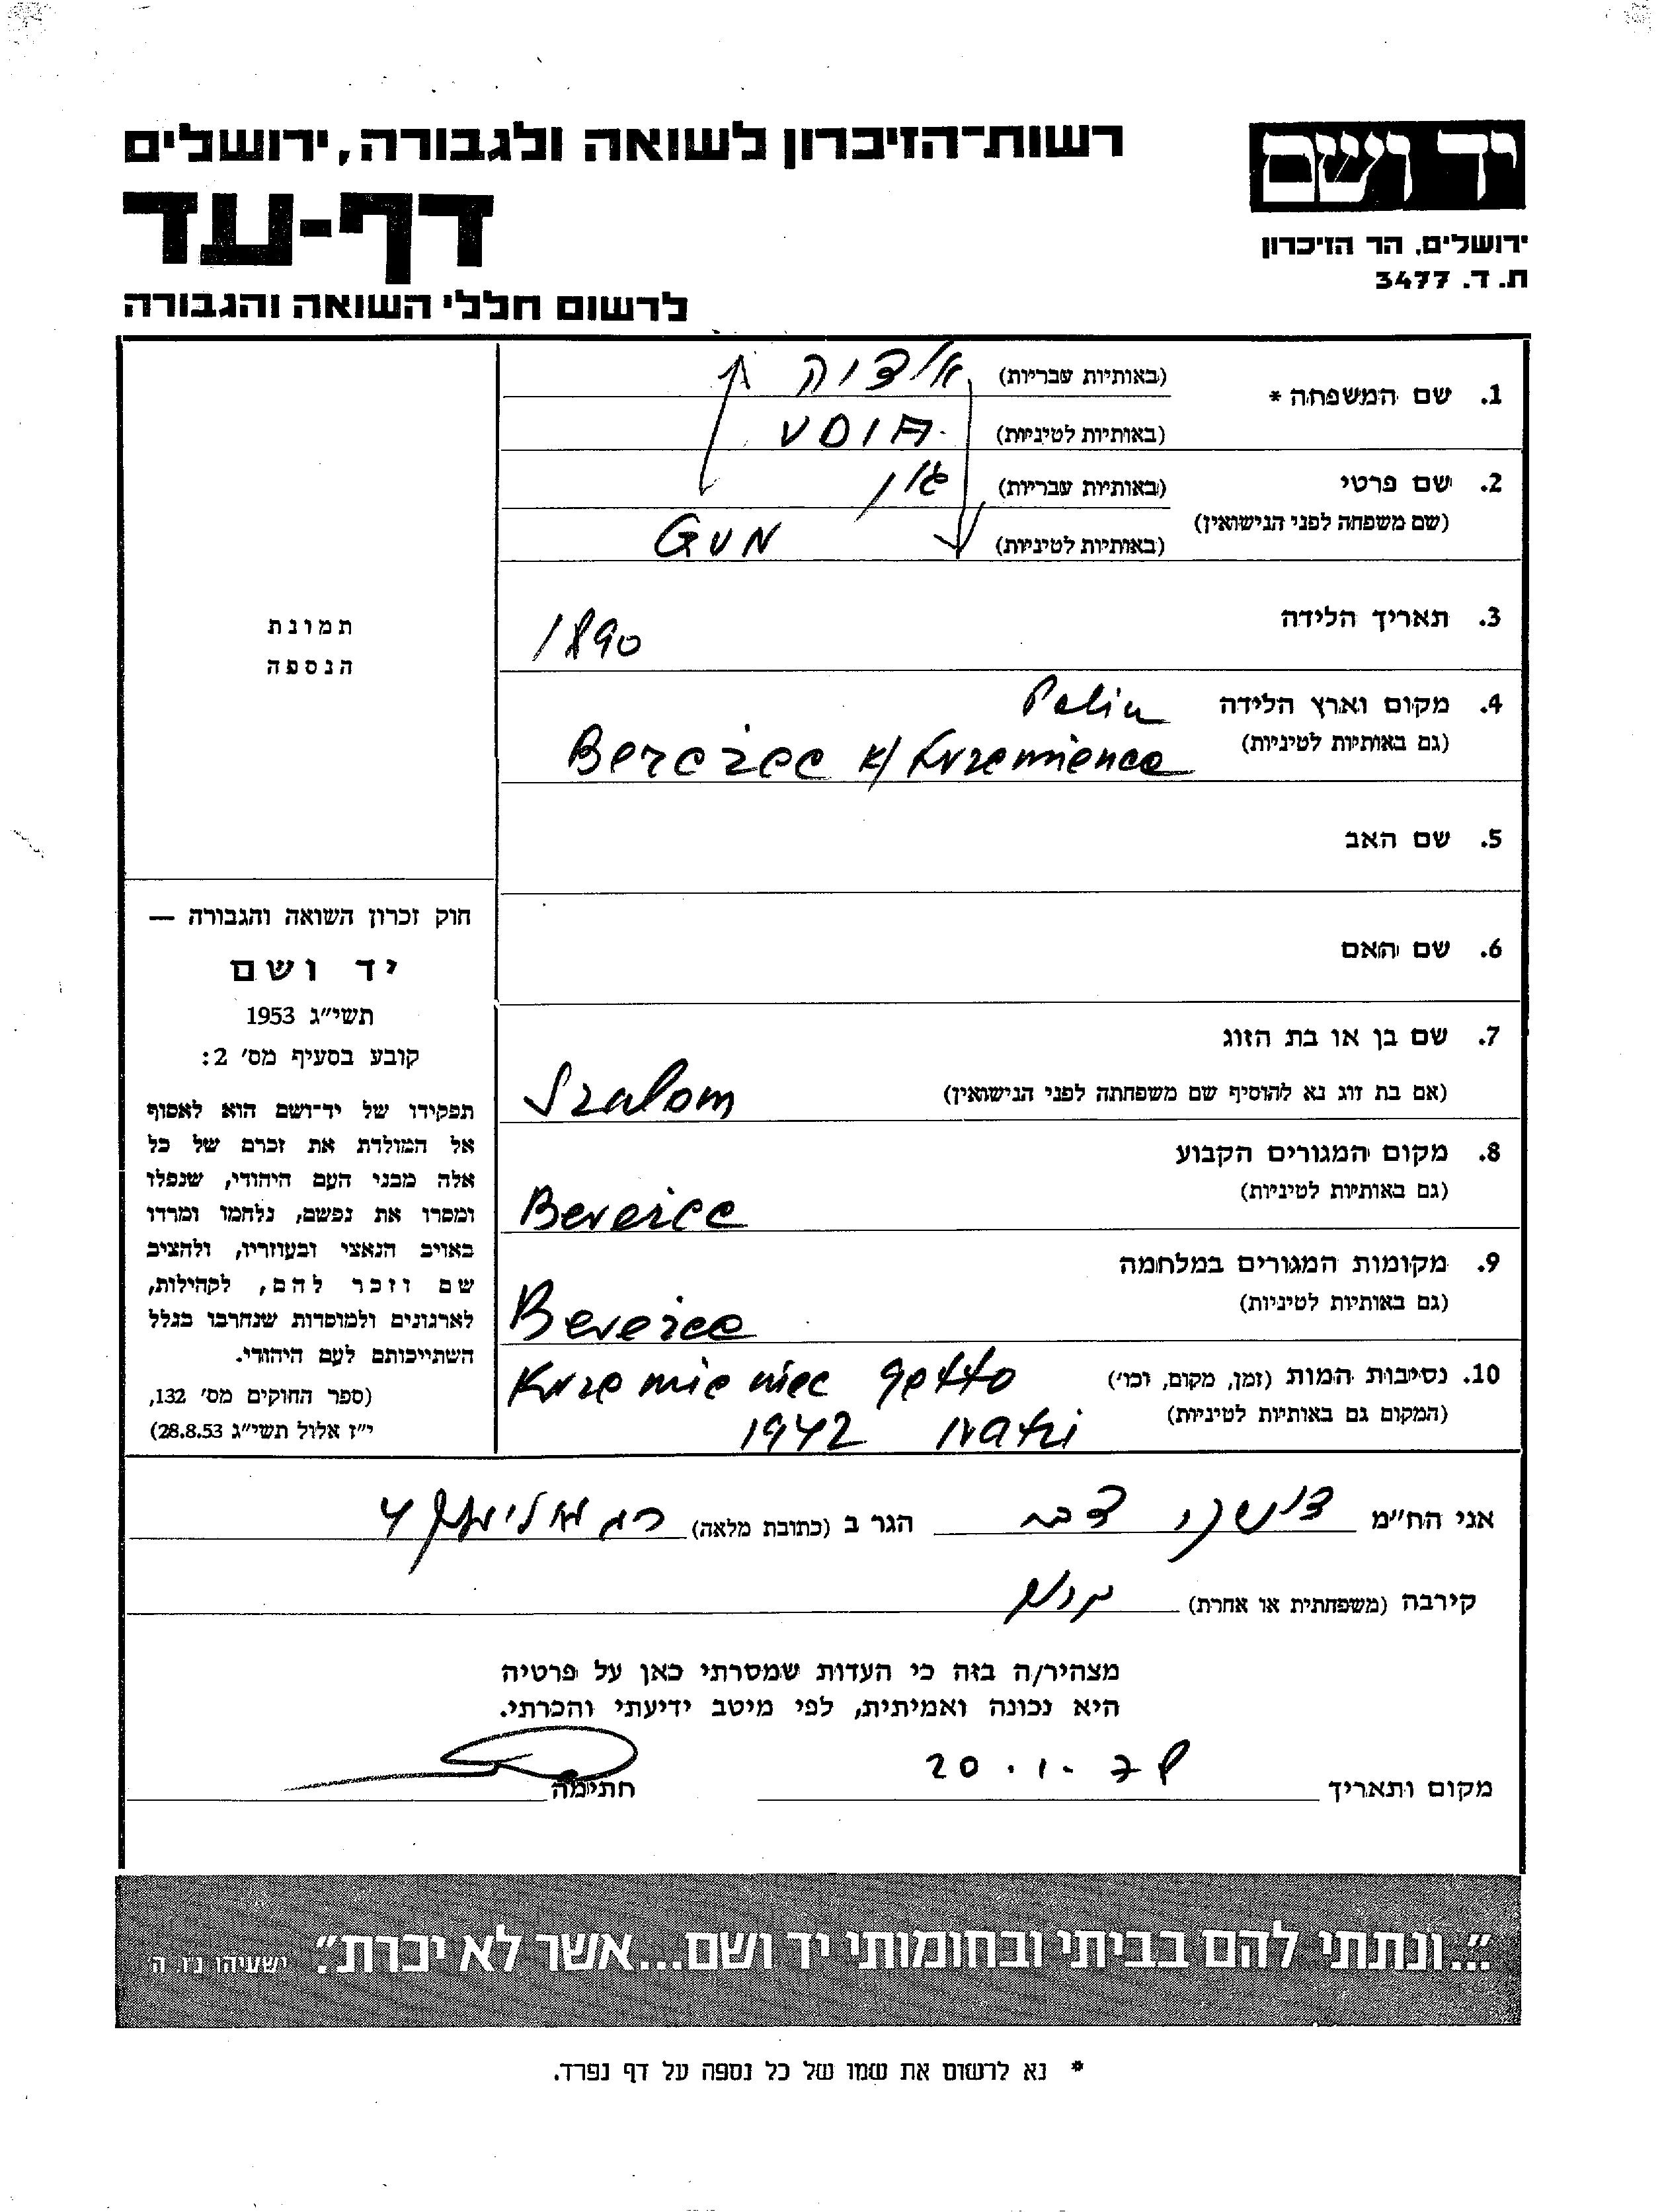 יד ושם
ירושלים, הר הזיכרון
ת. ד. 3477
רשות־הזיכרון לשואה ולגבורה, ירושלים
דף-עד
לרשום חללי השואה והגבורה
1. שם המשפחה *
(באותיות עבריות)
(באותיות לטיניות) VDIA
2. שם פרטי
(שם משפחה לפני הנישואין)
(באותיות עבריות) גון
(באותיות לטיניות) GUN
3. תאריך הלידה 1890
4. מקום וארץ הלידה
(גם באותיות לטיניות)
Bereżce k/ Krzemienca
5. שם האב
6. שם האם
7. שם בן או בת הזוג
(אם בת זוג נא להוסיף שם משפחתה לפני הנישואין) Szalom
8. מקום המגורים הקבוע
(גם באותיות לטיניות) Bereżce
9. מקומות המגורים במלחמה
(גם באותיות לטיניות) Bereżce
10. נסיבות המות (זמן, מקום, וכו')
(המקום גם באותיות לטיניות)
Krzemieniec getto
1942
תמונת
הנספה
חוק זכרון השואה והגבורה —
יד ושם
תשי״ג 1953
קובע בסעיף מס' 2:
תפקידו של יד־ושם הוא לאסוף
אל המולדת את זכרם של כל
אלה מבני העם היהודי, שנפלו
ומסרו את נפשם, נלחמו ומרדו
באויב הנאצי ובעוזריו, ולהציב
שם וזכר להם, לקהילות,
לארגונים ולמוסדות שנחרבו בגלל
השתייכותם לעם היהודי.
(ספר החוקים מס' 132,
י״ז אלול תשי״ג 28.8.53)
אני הח״מ
הגר ב (כתובת מלאה)
קירבה (משפחתית או אחרת)
מצהיר/ה בזה כי העדות שמסרתי כאן על פרטיה
היא נכונה ואמיתית, לפי מיטב ידיעתי והכרתי.
מקום ותאריך
חתימה
"...ונתתי להם בביתי ובחומותי יד ושם...אשר לא יכרת". ישעיהו נ״ו, ה'
* נא לרשום את שמו של כל נספה על דף נפרד.